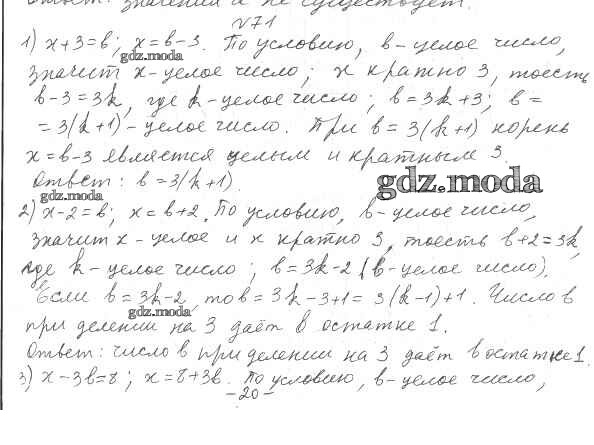 Ответ: значений и не существует.
№71
1) x+3=в; x=в-3. По условию, в-целое число,
gdz.moda
значит x-целое число; x кратно 3, тоесть
в-3=3k, где k-целое число; в=3k+3; в=
=3(k+1)-целое число. При в=3(k+1) корень
x=в-3 является целым и кратным 3.
Ответ: в=3(k+1).
gdz.moda
gdz.moda
2) x-2=в; x=в+2. По условию, в-целое число,
значит x-целое и x кратно 3, тоесть в+2=3k,
где k-целое число; в=3k-2 (в-целое число).
Если в=3k-2, то в=3k-3+1=3(k-1)+1. Число в
gdz.moda
при делении на 3 даёт в остатке 1.
Ответ: число в при делении на 3 даёт в остатке 1.
3) x-3в=8; x=8+3в. По условию, в-целое число,
-20-